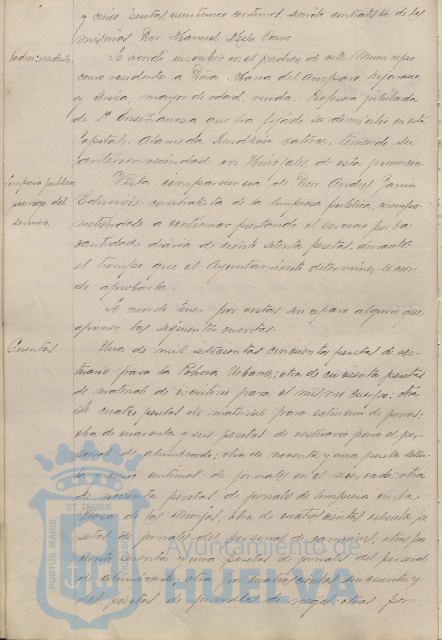 y cinco pesetas veinticinco centimos, siendo contratista de las
mismas Don Manuel
Padron: residente.
Se acordó inscribir en el padron de este Municipio
como residente a Doña Maria del Amparo Bejarano
y Ariza, mayor de edad, viuda, Profesora jubilada
de 1ª Enseñanza que ha fijado su domicilio en esta
Capital, Alameda Sundheim catorce, teniendo su
anterior vecindad en Hinojales de esta provincia
Limpieza publica,
prorroga del
servicio.
Vista comparecencia de Don Andrés Garcia
contratista de la limpieza publica, compro-
metiendose a continuar prestando el servicio por la
cantidad diaria de ciento setenta pesetas, durante
el tiempo que el Ayuntamiento determine, se acor-
dó aprobarla.
Se acordó tener por vistas sin reparo alguno que
oponer las siguientes cuentas.
Cuentas
Una de mil setecientas cincuenta pesetas de ves-
tuario para la Policia Urbana; otra de cincuenta pesetas
de material de escritorio para el mismo cuerpo; otra
de cuatro pesetas de material para extincion de perros;
otra de cuarenta y seis pesetas de vestuario para el per-
sonal de alumbrado; otra de noventa y una peseta seten-
ta y cinco centimos de jornales en el mercado; otra
de noventa pesetas de jornales de limpieza en la
Plaza de las Monjas, otra de cuatrocientas ochenta pe-
setas de jornales del personal de caminos; otras por
ciento cuenta y una pesetas de jornales del personal
de alumbrado; otra de cuatrocientas cincuenta y
seis pesetas de jornales de riegos; otras por
PORTUS MARIS
ET TERRAE
CUSTODIA
Ayuntamiento de
HUELVA